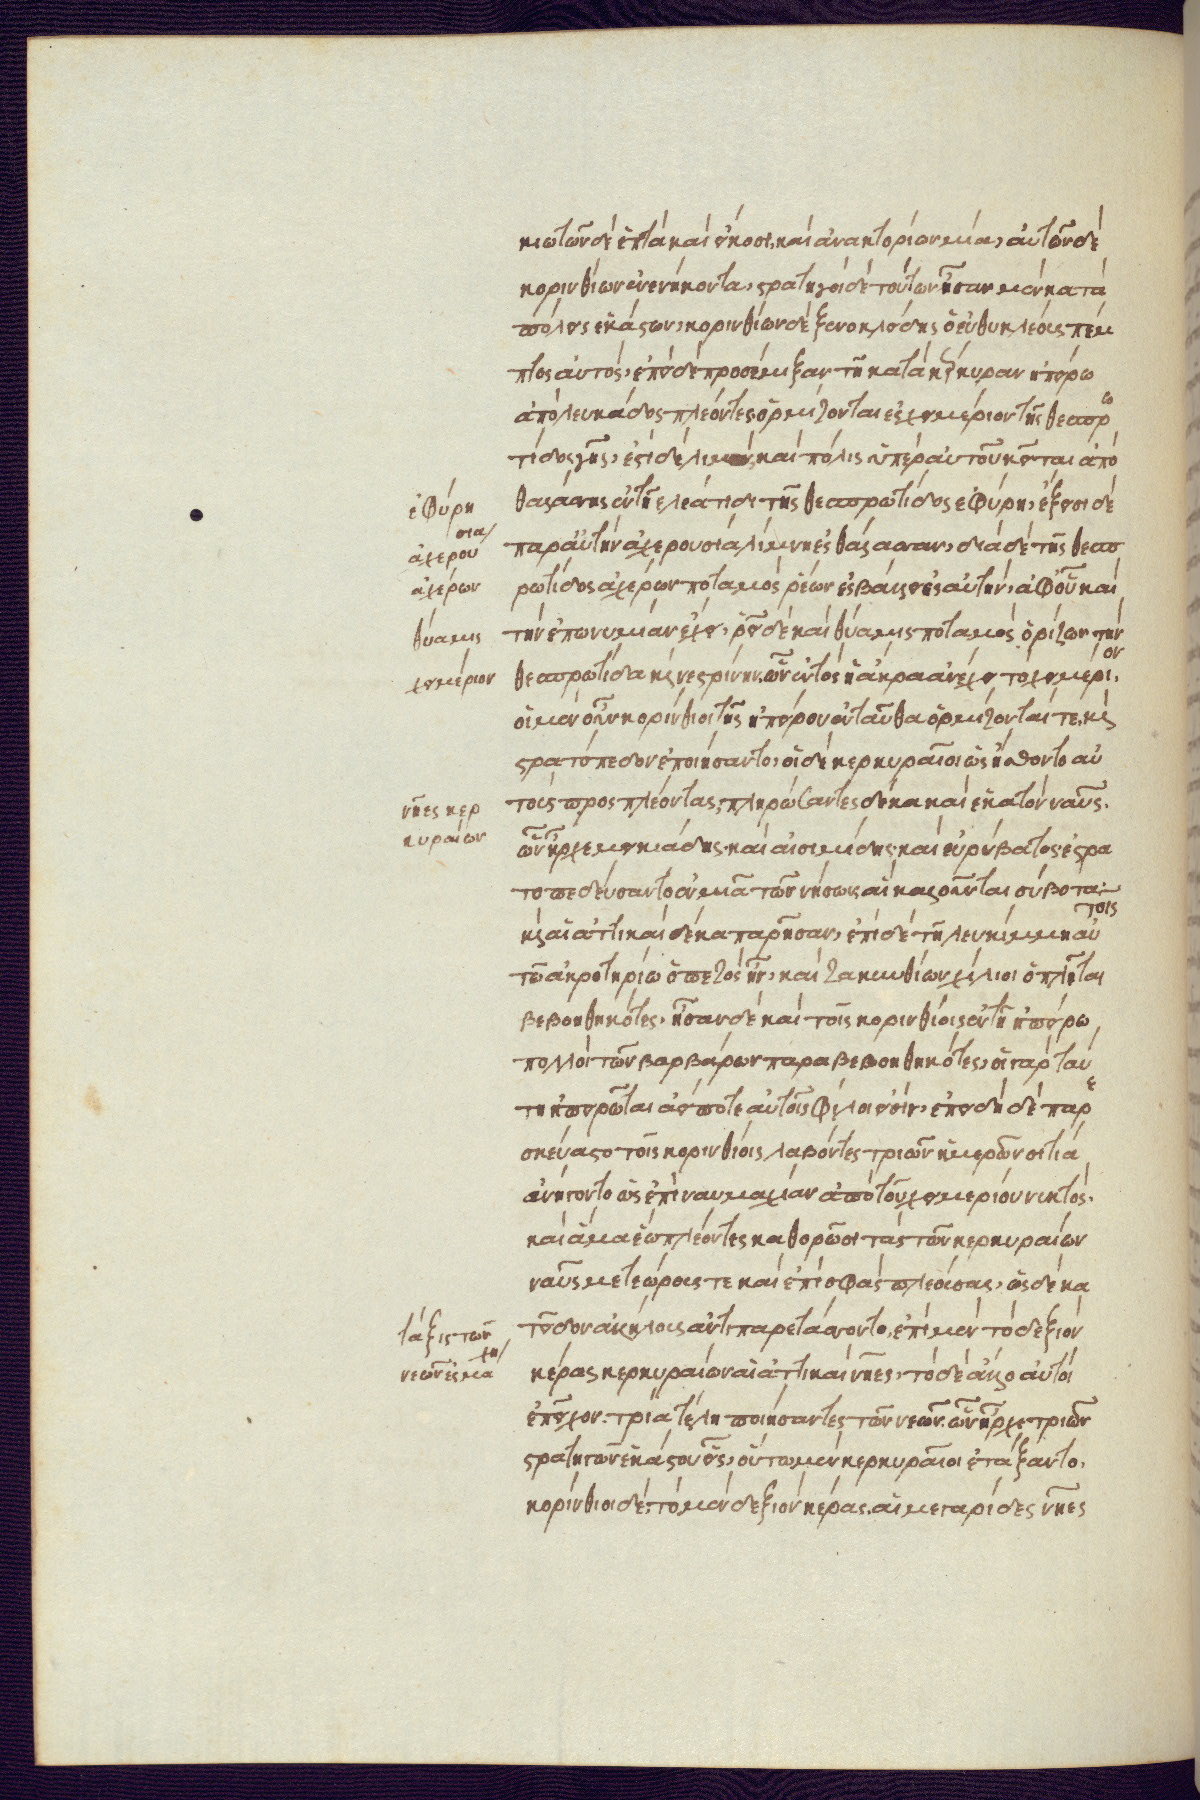 κιωτῶν δὲ ἑπτὰ καὶ εἴκοσι, καὶ ἀνακτορίων μία, αὐτῶν δὲ
κορινθίων ἐνενήκοντα, στρατηγοὶ δὲ τούτων ἦσαν μὲν κατὰ
πόλεις ἑκάστων, κορινθίων δὲ ξενοκλείδης ὁ εὐθυκλέους πέμ
πτος αὐτός, ἐπειδὲ προσέμιξαν τῇ κατὰ κέρκυραν ἠπείρω
ἀπὸ λευκάδος πλέοντες ὁρμίζονται ἐς χειμέριον τῆς θεσπρω
τίδος γῆς, ἔστι δὲ λιμὴν καὶ πόλις ὑπὲρ αὐτοῦ κεῖται ἀπὸ
ἐφύρη
θαλάσσης ἐν τῇ ἐλεάτιδι τῆς θεσπρωτίδος ἐφύρη, ἔξεισι δὲ
ἀχερουσία
παρ' αὐτὴν ἀχερουσία λίμνη ἐς θάλασσαν, διὰ δὲ τῆς θεσπ
ἀχέρων
ρωτίδος ἀχέρων ποταμὸς ῥέων ἐσβάλλει ἐς αὐτήν, ἀφ' οὗ καὶ
θύαμις
τὴν ἐπωνυμίαν ἔχει, ῥεῖ δὲ καὶ θύαμις ποταμός, ὁρίζων τὴν
χειμέριον
θεσπρωτίδα καὶ κεστρίνην, ὧν ἐντὸς ἡ ἄκρα ἀνέχει τὸ χειμέριον.
οἱ μὲν οὖν κορίνθιοι τῆς ἠπείρου ἐνταῦθα ὁρμίζονταί τε καὶ
στρατόπεδον ἐποιήσαντο, οἱ δὲ κερκυραῖοι ὡς ἤσθοντο αὐ
νῆες κερ
τοὺς προσπλέοντας, πληρώσαντες δέκα καὶ ἑκατὸν ναῦς.
κυραίων
ὧν ἦρχε μεικιάδης, καὶ αἰσιμίδης, καὶ εὐρύβατος, ἐστρα
τοπεδεύσαντο ἐν μιᾷ τῶν νήσων, αἳ καλοῦνται σύβοτα.
καὶ αἱ ἀττικαὶ δέκα παρῆσαν, ἐπὶ δὲ τῇ λευκίμμη αὐτοῖς
τῶ ἀκροτηρίω ὁ πεζὸς ἦν, καὶ ζακυνθίων χίλιοι ὁπλῖται
βεβοηθηκότες, ἦσαν δὲ καὶ τοῖς κορινθίοις ἐν τῇ ἠπείρω
πολλοὶ τῶν βαρβάρων παραβεβοηθηκότες, οἱ γὰρ ταύ
τῃ ἠπειρῶται ἀεί ποτε αὐτοῖς φίλοι εἰσίν, ἐπειδὴ δὲ παρε
σκεύαστο τοῖς κορινθίοις, λαβόντες τριῶν ἡμερῶν σιτία
ἀνήγοντο ὡς ἐπὶ ναυμαχίαν ἀπὸ τοῦ χειμερίου νυκτός.
καὶ ἅμα ἕω πλέοντες καθορῶσι τὰς τῶν κερκυραίων
ναῦς μετεώρους τε καὶ ἐπὶ σφᾶς πλεούσας, ὡς δὲ κα
τάξις τῶν
τεῖδον ἀλλήλους ἀντιπαρετάσσοντο, ἐπὶ μὲν τὸ δεξιὸν
νεῶν ἐς μάχην
κέρας κερκυραίων αἱ ἀττικαὶ νῆες, τὸ δὲ ἄλλο αὐτοὶ
ἐπεῖχον, τρία τέλη ποιήσαντες τῶν νεῶν. ὧν ἦρχε τριῶν
στρατηγῶν ἑκάστου εἷς, οὕτω μὲν κερκυραῖοι ἐτάξαντο.
κορίνθιοι δὲ, τὸ μὲν δεξιὸν κέρας, αἱ μεγαρίδες νῆες